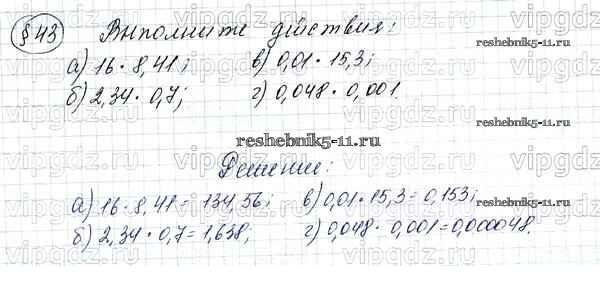 § 43 Выполните действия:
а) 16 · 8,41; в) 0,01 · 15,3;
б) 2,34 · 0,7; г) 0,048 · 0,001.
reshebnik5-11.ru
reshebnik5-11.ru
reshebnik5-11.ru
Решение:
а) 16 · 8,41 = 134,56; в) 0,01 · 15,3 = 0,153;
б) 2,34 · 0,7 = 1,638; г) 0,048 · 0,001 = 0,000048.
vipgdz vipgdz vipgdz vipgdz